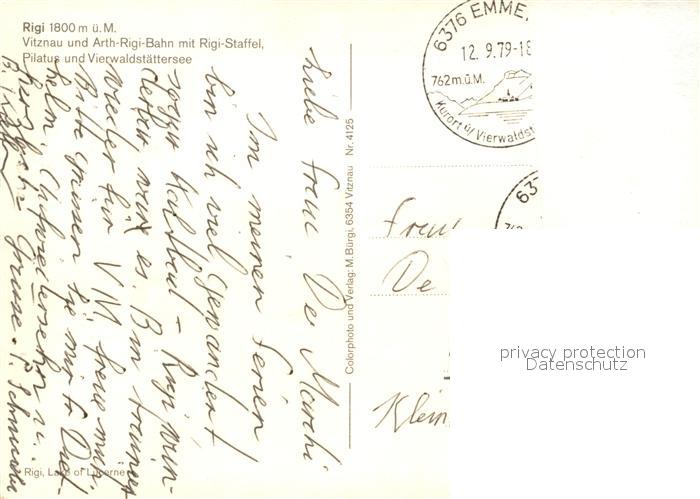 Rigi 1800 m ü. M.
Vitznau und Arth-Rigi-Bahn mit Rigi-Staffel,
Pilatus und Vierwaldstättersee
Liebe Frau De Marchi
In meinen Ferien
bin ich viel gewandert
sogar Kaltbad - Rigi wun-
derbar war es. Bin traurig
wieder für VM
Bitte grüssen Sie mir Fr
Aufwiedersehn u.
herzliche Grüsse.
Rigi, Lake of Lucerne
Colorphoto und Verlag: M. Bürgi, 6354 Vitznau Nr. 4125
6376 EMME
12. 9.79-18
762 m.ü.M.
Kurort ü/Vierwaldst
637
Frau
De
Klein
privacy protection
Datenschutz